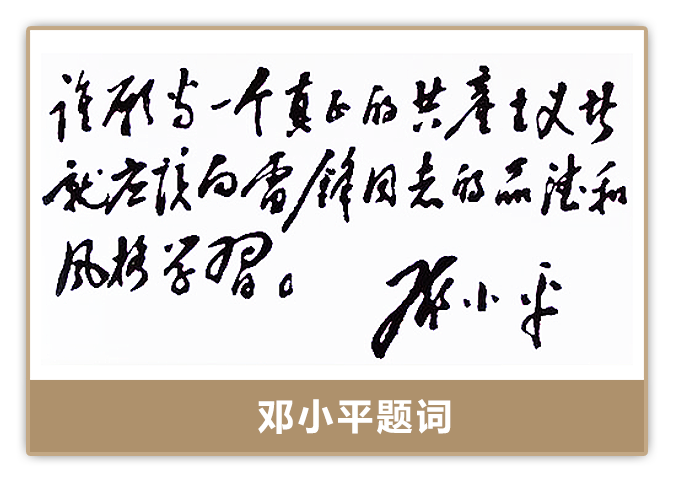 谁愿当一个真正的共產主义者
就应該向雷鋒同志的品德和
风格学习。
邓小平
邓小平题词